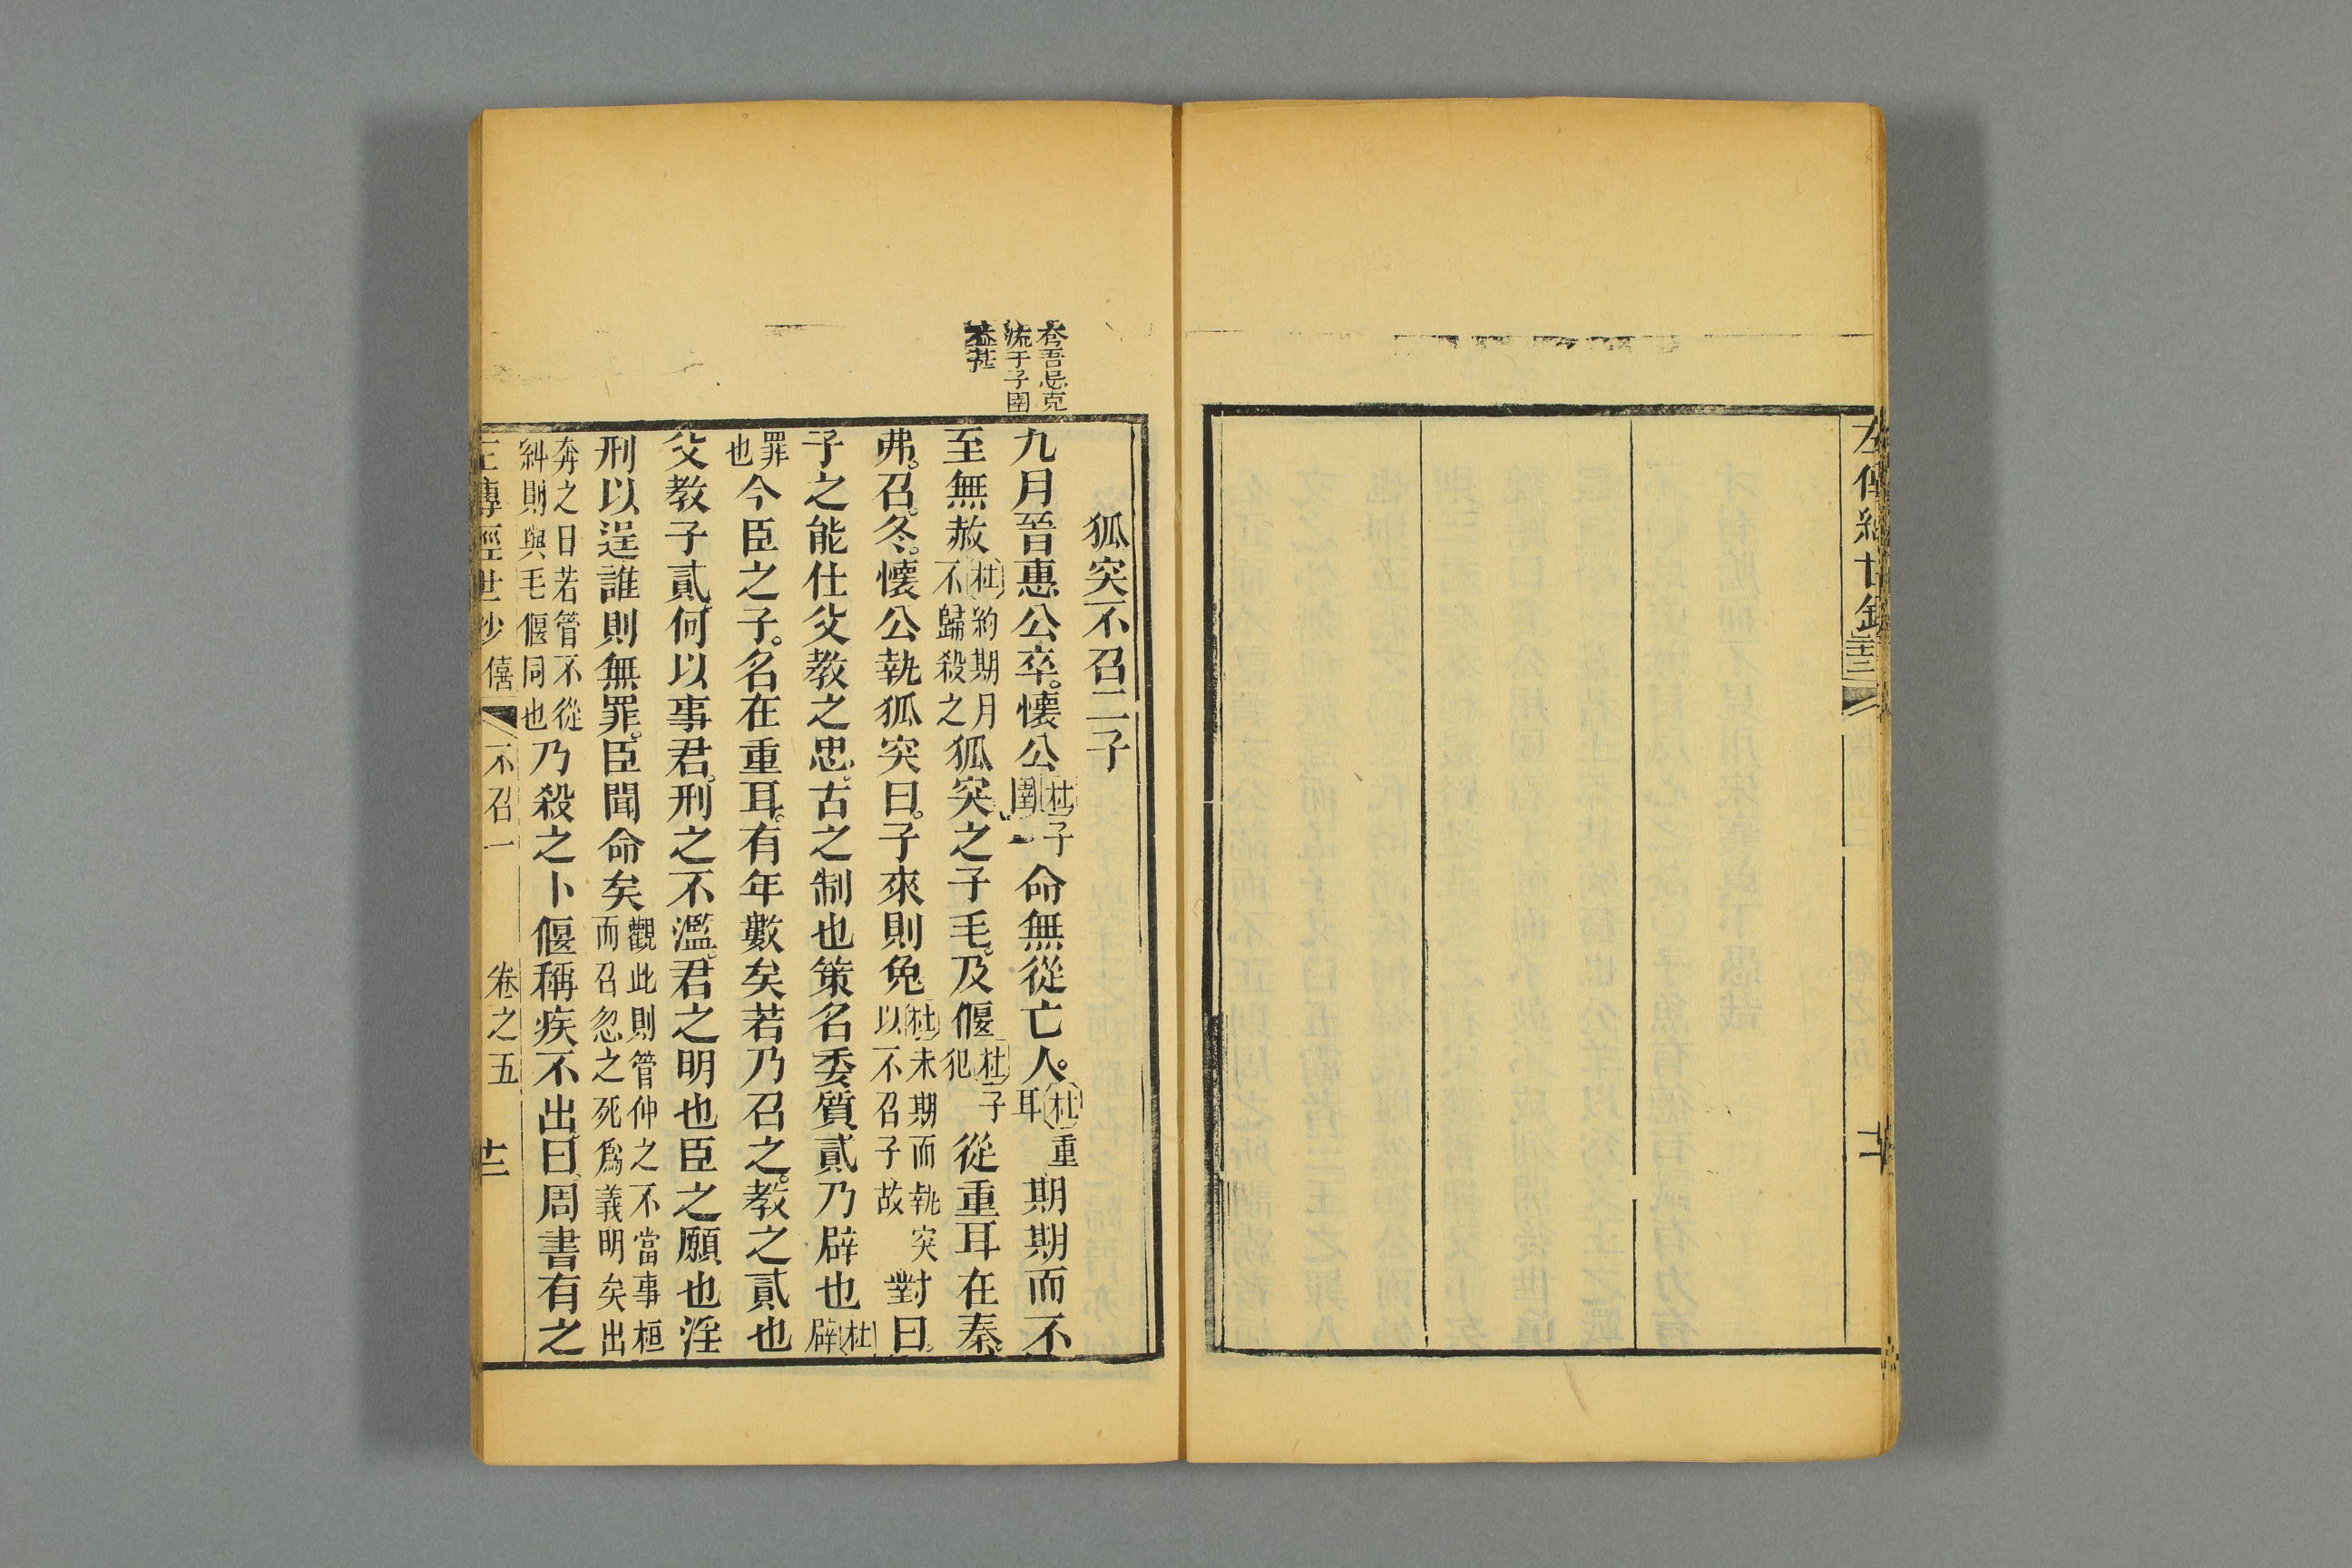 左傳經世鈔
夲吾忌克
流于子圉
益甚
狐突不召二子
九月晉惠公卒。懷公杜子圉命無從亡人。杜重耳期期而不
至無赦杜約期月不歸殺之狐突之子毛。及偃杜子犯從重耳在秦。
弗。召。冬。懷公執狐突曰。子來則免杜未期而執突以不召子故對曰。
子之能仕父教之忠。古之制也策名委質貳乃辟也杜辟
罪也今臣之子。名在重耳。有年數矣若乃召之。教之貳也
父教子貳。何以事君。刑之不濫。君之明也臣之願也淫
刑以逞誰則無罪。臣聞命矣觀此則管仲之不當事桓而召忽之死爲義明矣出
奔之日若管不從糾則與毛偃同也乃殺之卜偃稱疾不出曰。周書有之
左傳經世鈔 僖 不召一 卷之五 十二